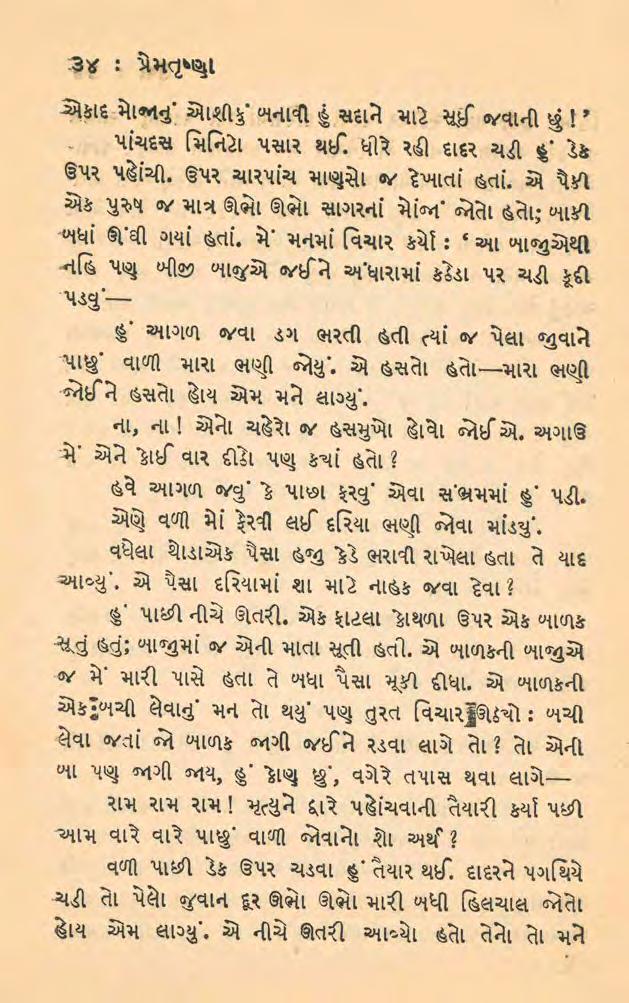 ૩૪ : પ્રેમતૃષ્ણા
એકાદ મોજાનું ઓશીકું બનાવી હું સદાને માટે સૂઈ જવાની છું ! ’
પાંચદસ મિનિટો પસાર થઈ. ધીરે રહી દાદર ચડી હું ડેક
ઉપર પહોંચી. ઉપર ચારપાંચ માણસો જ દેખાતાં હતાં. એ પૈકી
એક પુરુષ જ માત્ર ઊભો ઊભો સાગરનાં મોંજાં જોતો હતો; બાકી
બધાં ઊંઘી ગયાં હતાં. મેં મનમાં વિચાર કર્યો : ‘ આ બાજુએથી
નહિ પણ બીજી બાજુએ જઈને અંધારામાં કઠેડા પર ચડી કૂદી
પડવું—
હું આગળ જવા ડગ ભરતી હતી ત્યાં જ પેલા જુવાને
પાછું વાળી મારા ભણી જોયું. એ હસતો હતો—મારા ભણી
જોઈને હસતો હોય એમ મને લાગ્યું.
ના, ના ! એનો ચહેરો જ હસમુખો હોવો જોઈએ. અગાઉ
મેં એને કોઈ વાર દીઠો પણ કયાં હતો ?
હવે આગળ જવું કે પાછા ફરવું એવા સંભ્રમમાં હું પડી.
એણે વળી મોં ફેરવી લઈ દરિયા ભણી જોવા માંડયું.
વધેલા થોડાએક પૈસા હજુ કેડે ભરાવી રાખેલા હતા તે યાદ
આવ્યું. એ પૈસા દરિયામાં શા માટે નાહક જવા દેવા ?
હું પાછી નીચે ઊતરી. એક ફાટલા કોથળા ઉપર એક બાળક
સૂતું હતું; બાજુમાં જ એની માતા સૂતી હતી. એ બાળકની બાજુએ
જ મેં મારી પાસે હતા તે બધા પૈસા મૂકી દીધા. એ બાળકની
એક બચી લેવાનું મન તો થયું પણ તુરત વિચાર ઊઠયો : બચી
લેવા જતાં જો બાળક જાગી જઈને રડવા લાગે તો ? તો એની
બા પણ જાગી જાય, હું કોણ છું, વગેરે તપાસ થવા લાગે—
રામ રામ રામ ! મૃત્યુને દ્વારે પહોંચવાની તૈયારી કર્યા પછી
આમ વારે વારે પાછું વાળી જોવાનો શો અર્થ ?
વળી પાછી ડેક ઉપર ચડવા હું તૈયાર થઈ. દાદરને પગથિયે
ચડી તો પેલો જુવાન દૂર ઊભો ઊભો મારી બધી હિલચાલ જોતો
હોય એમ લાગ્યું. એ નીચે ઊતરી આવ્યો હતો તેનો તો મને